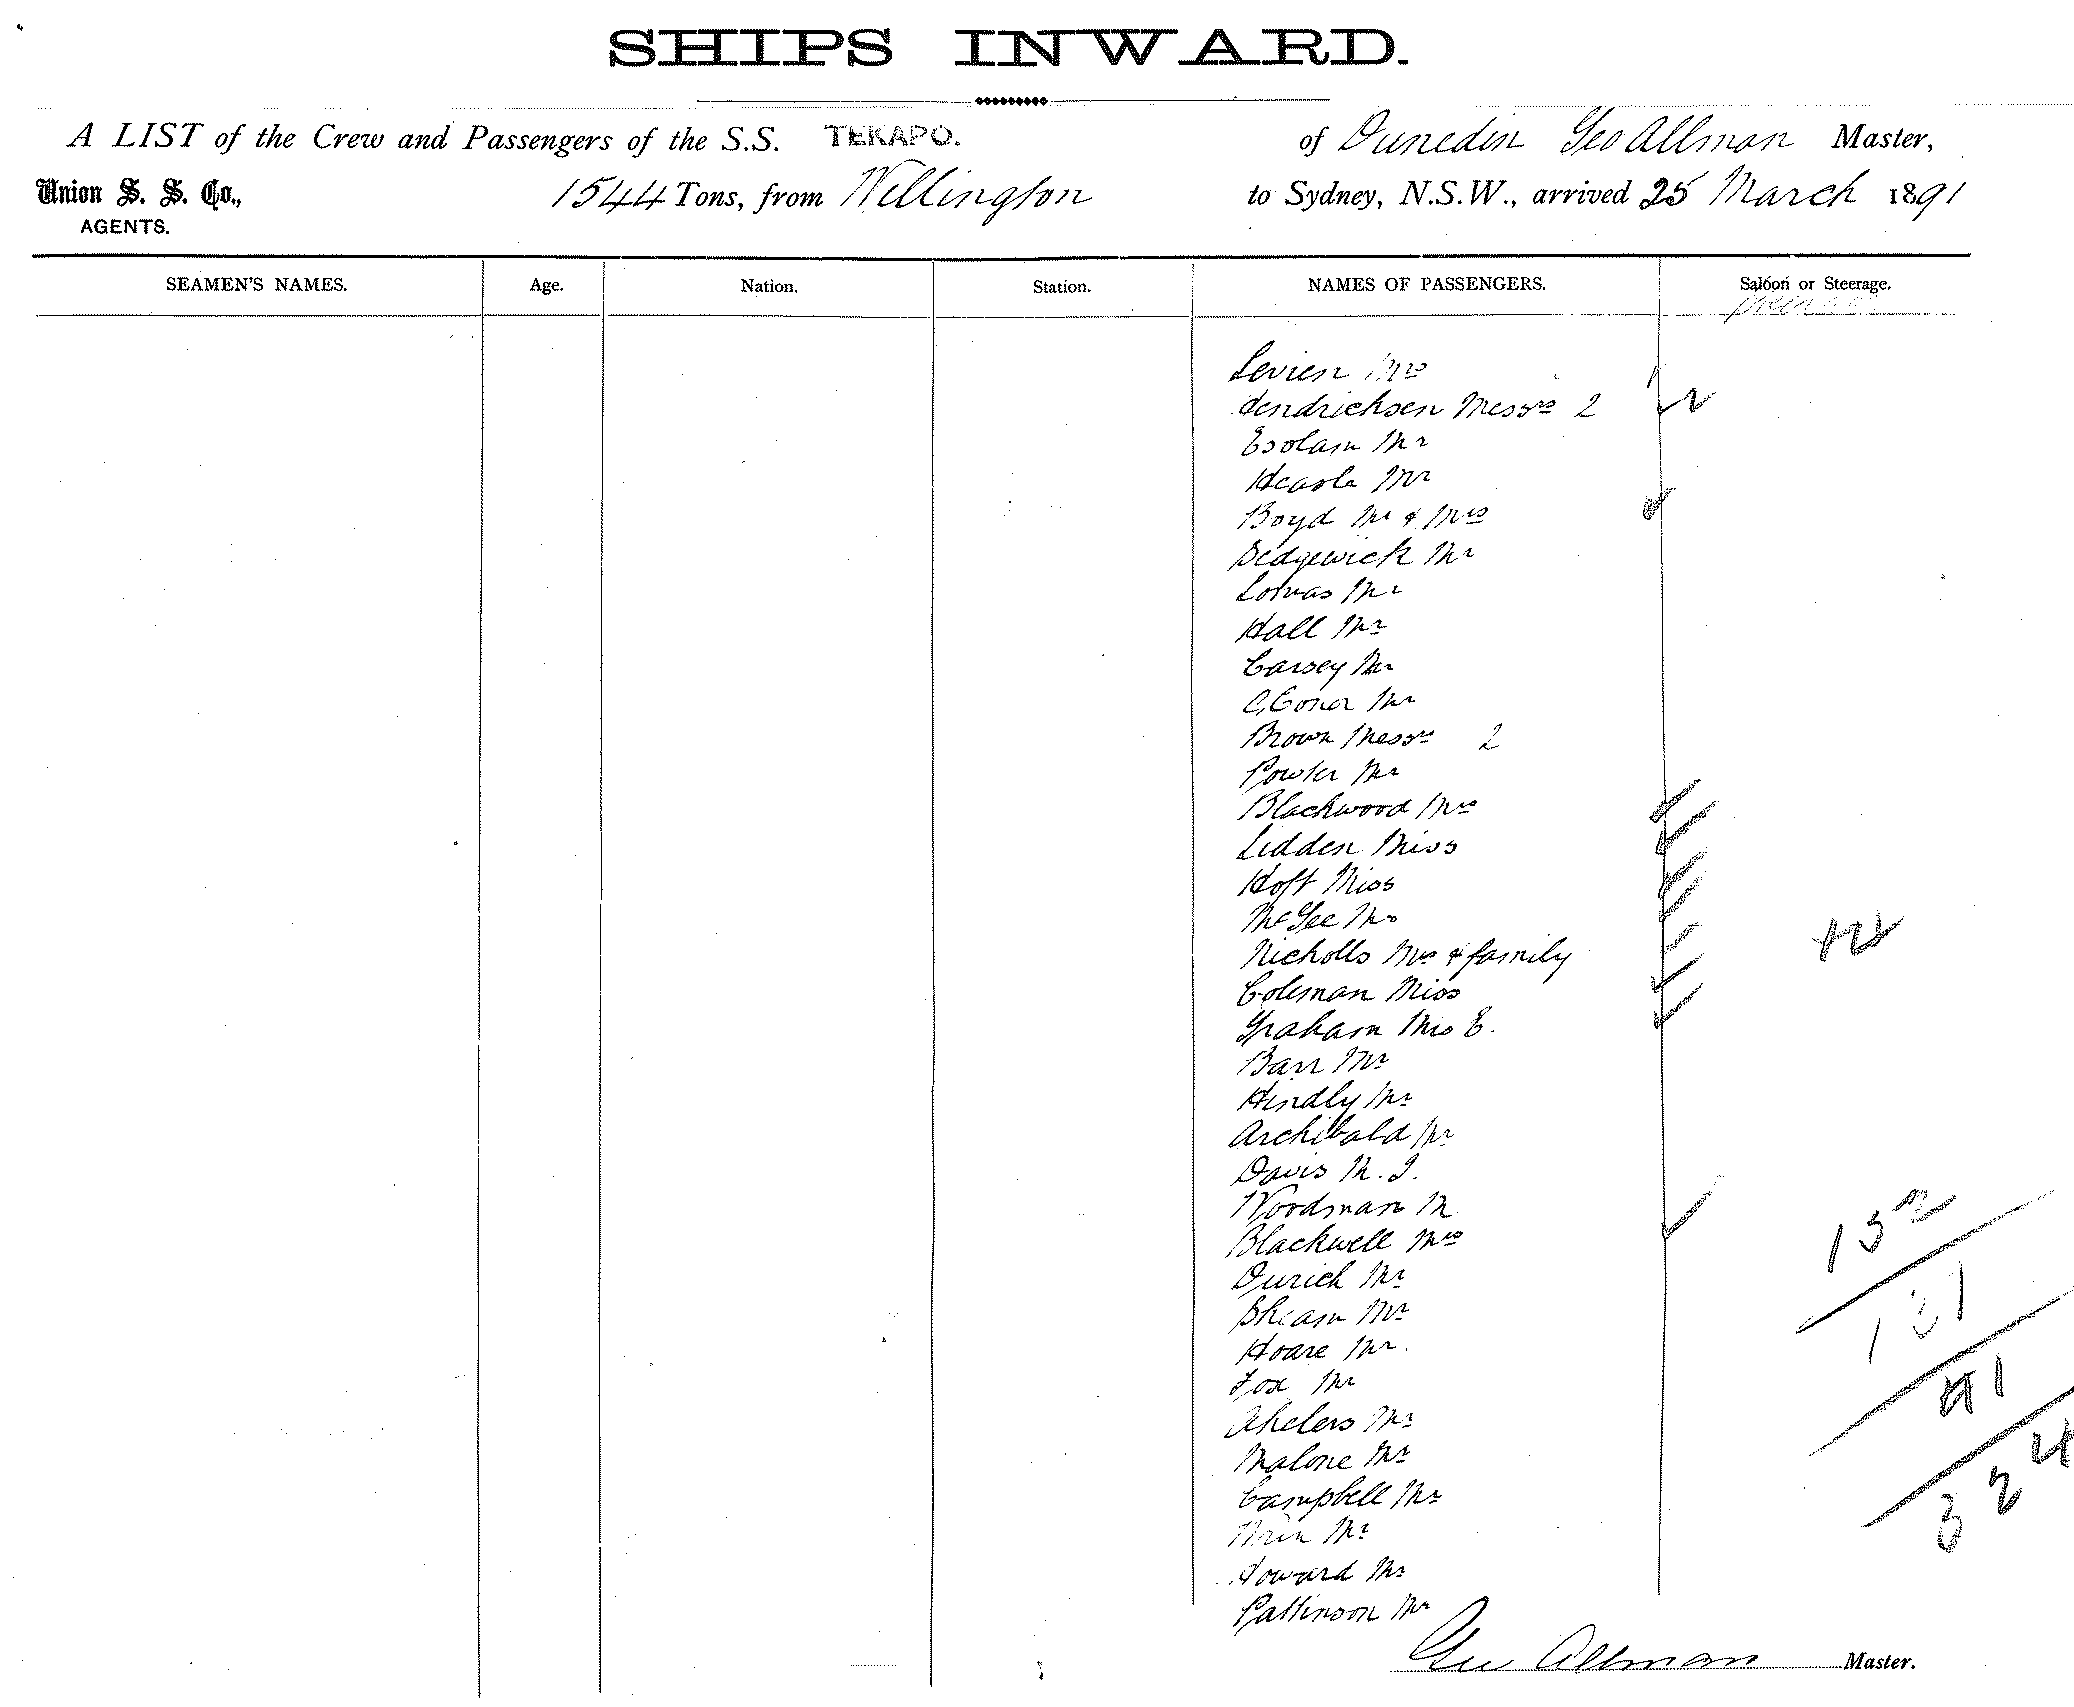 SHIPS INWARD.
A LIST of the Crew and Passengers of the S.S. TEKAPO. of Dunedin Geo Allman Master,
Union S. S. Co., 1544 Tons, from Wellington to Sydney, N.S.W., arrived 25 March 1891
AGENTS.
SEAMEN'S NAMES. Age. Nation. Station. NAMES OF PASSENGERS. Saloon or Steerage.
Levien Mrs
Hendrichsen Messrs 2
Esolam Mr
Hearle Mr
Boyd Mr & Mrs
Sedgewick Mr
Lomas Mr
Hall Mr
Carsey Mr
Mr
Brown Messrs 2
Fowler Mr
Blackwood Mrs
Lidden Miss
Hoft Miss
McGee Mrs
Nicholls Mrs & family
Coleman Miss
Graham Mrs E.
Barr Mr
Hindly Mr
Archibald Mr
Davis M. J.
Woodman M
Blackwell Mrs
Durich Mr
Shearn Mr
Hoare Mr.
Fox Mr
Ahelers Mr
Malone Mr
Campbell Mr
Mr
Howard Mr
Pattinson Mr
Geo Allman Master.